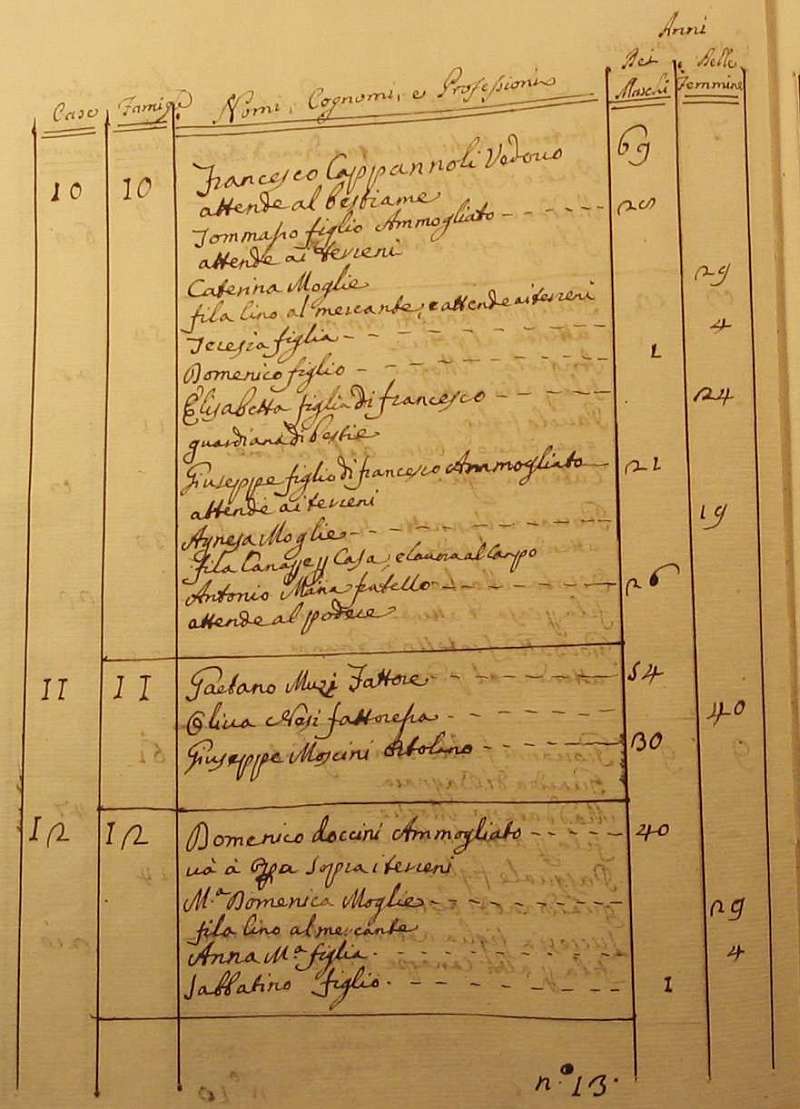 Anni
Case Famiglie Nomi, Cognomi, e Professioni Dei Maschi Delle Femmine
10 10 Francesco Cappannoli Vedovo 69
attende al bestiame
Tommaso figlio Ammogliato - - - - - -
attende ai terreni
Caterina Moglie 29
fila lino al mercante, e attende ai terreni
Teresia figlia - - - - - - 4
Domenico figlio - - - - - - 1
Elisabetta figlia di francesco - - - - 24
guardiana di bestie
Giuseppe figlio di francesco Ammogliato 21
attende ai terreni
Agnesa Moglie - - - - - - 19
fila Canape p Casa, e lavora al Campo
Antonio Maria fratello - - - - - - 26
attende al podere
11 11 Gaetano Muzi Fattore - - - - - - 54
Oliva Nesi fattoressa - - - - - - 40
Giuseppe Moscini Ortolano - - - - - 30
12 12 Domenico Loccini Ammogliato - - - - 40
và à Opa sopra i terreni
M.a Domenica Moglie - - - - - - 29
fila lino al mercante
Anna M.a figlia - - - - - - 4
Sabbatino figlio - - - - - - 1
n.o 13.